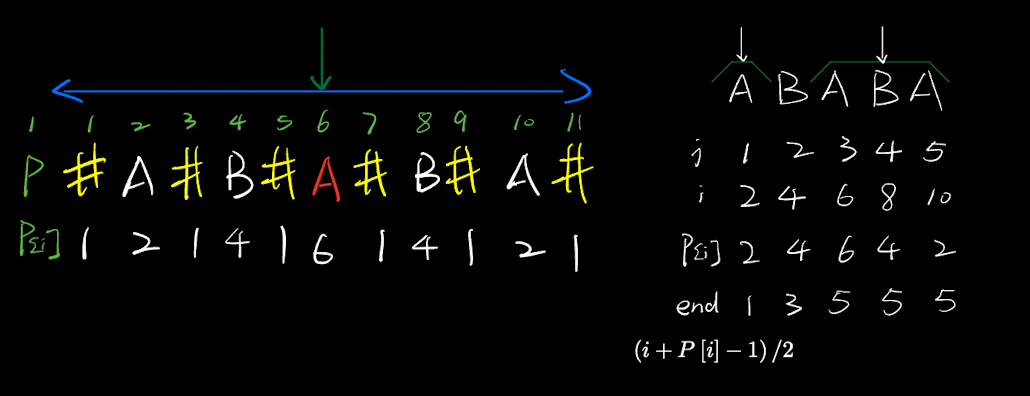 1 1 2 3 4 5 6 7 8 9 10 11
P # A # B # A # B # A #
P[i] 1 2 1 4 1 6 1 4 1 2 1
A B A B A
j 1 2 3 4 5
i 2 4 6 8 10
P[i] 2 4 6 4 2
end 1 3 5 5 5
(i + P [i] − 1) /2